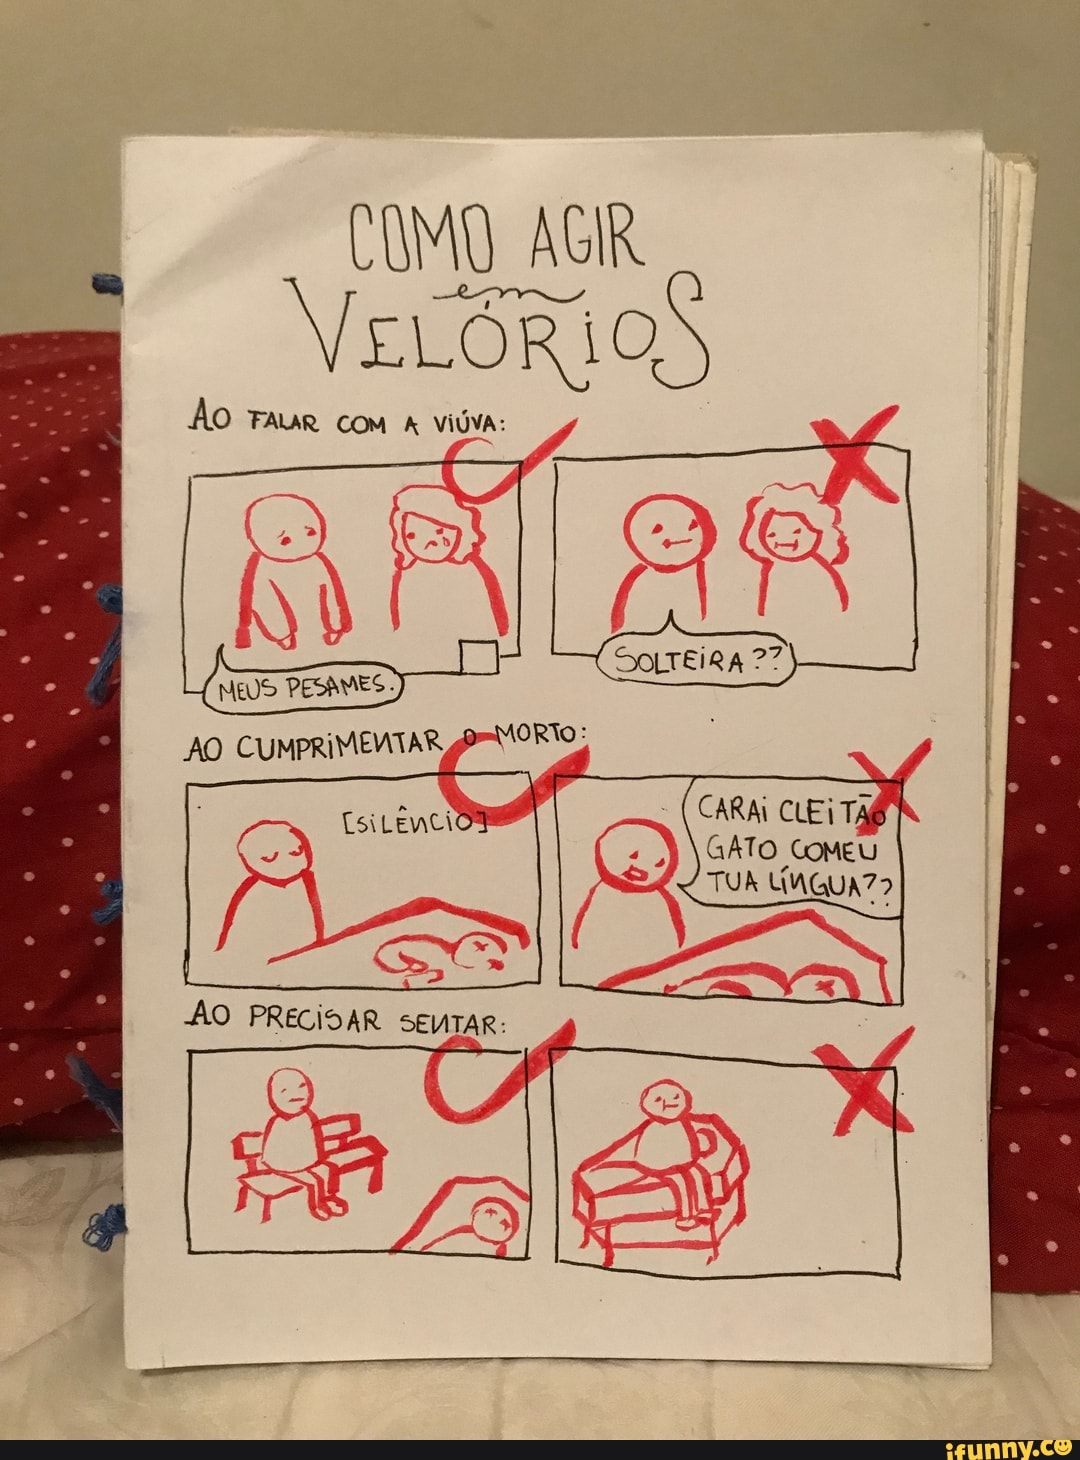 COMO AGIR
em
VELÓRIOS
AO FALAR COM A VIÚVA:
MEUS PESAMES.
SOLTEIRA??
AO CUMPRIMENTAR O MORTO:
[SILÊNCIO]
CARAI CLEITÃO
GATO COMEU
TUA LÍNGUA??
AO PRECISAR SENTAR:
ifunny.co